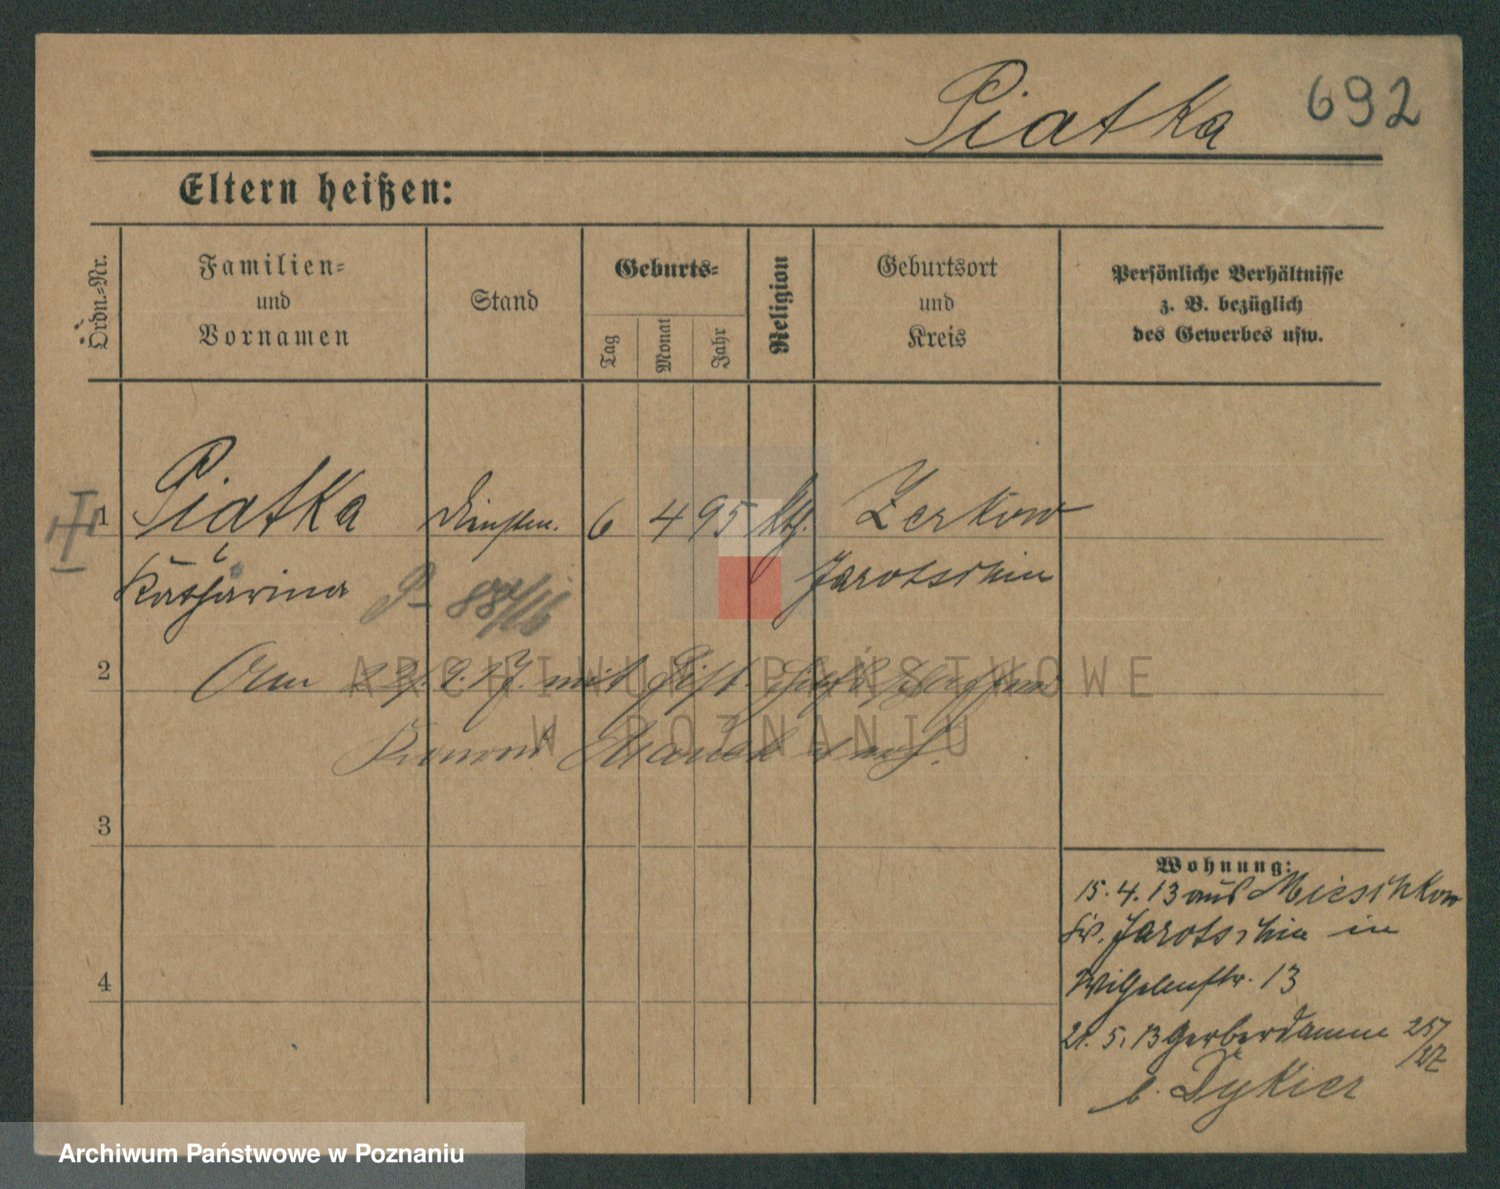 Piatka 692
Eltern heißen:
Ordn.-Nr.
Familien-
und
Vornamen
Stand
Geburts-
Tag
Monat
Jahr
Religion
Geburtsort
und
Kreis
Persönliche Verhältnisse
z. B. bezüglich
des Gewerbes usw.
1 Piatka 6 4 95 Zerkow
Katharina Jarotschin
2
Am mit
3
4
Wohnung:
15. 4. 13 aus Mieschkow
Kr. Jarotschin in
Wilhelmstr. 13
21. 5. 13 Gerberdamm 25/
/27
b. Dykier
ARCHIWUM PAŃSTWOWE
W POZNANIU
Archiwum Państwowe w Poznaniu